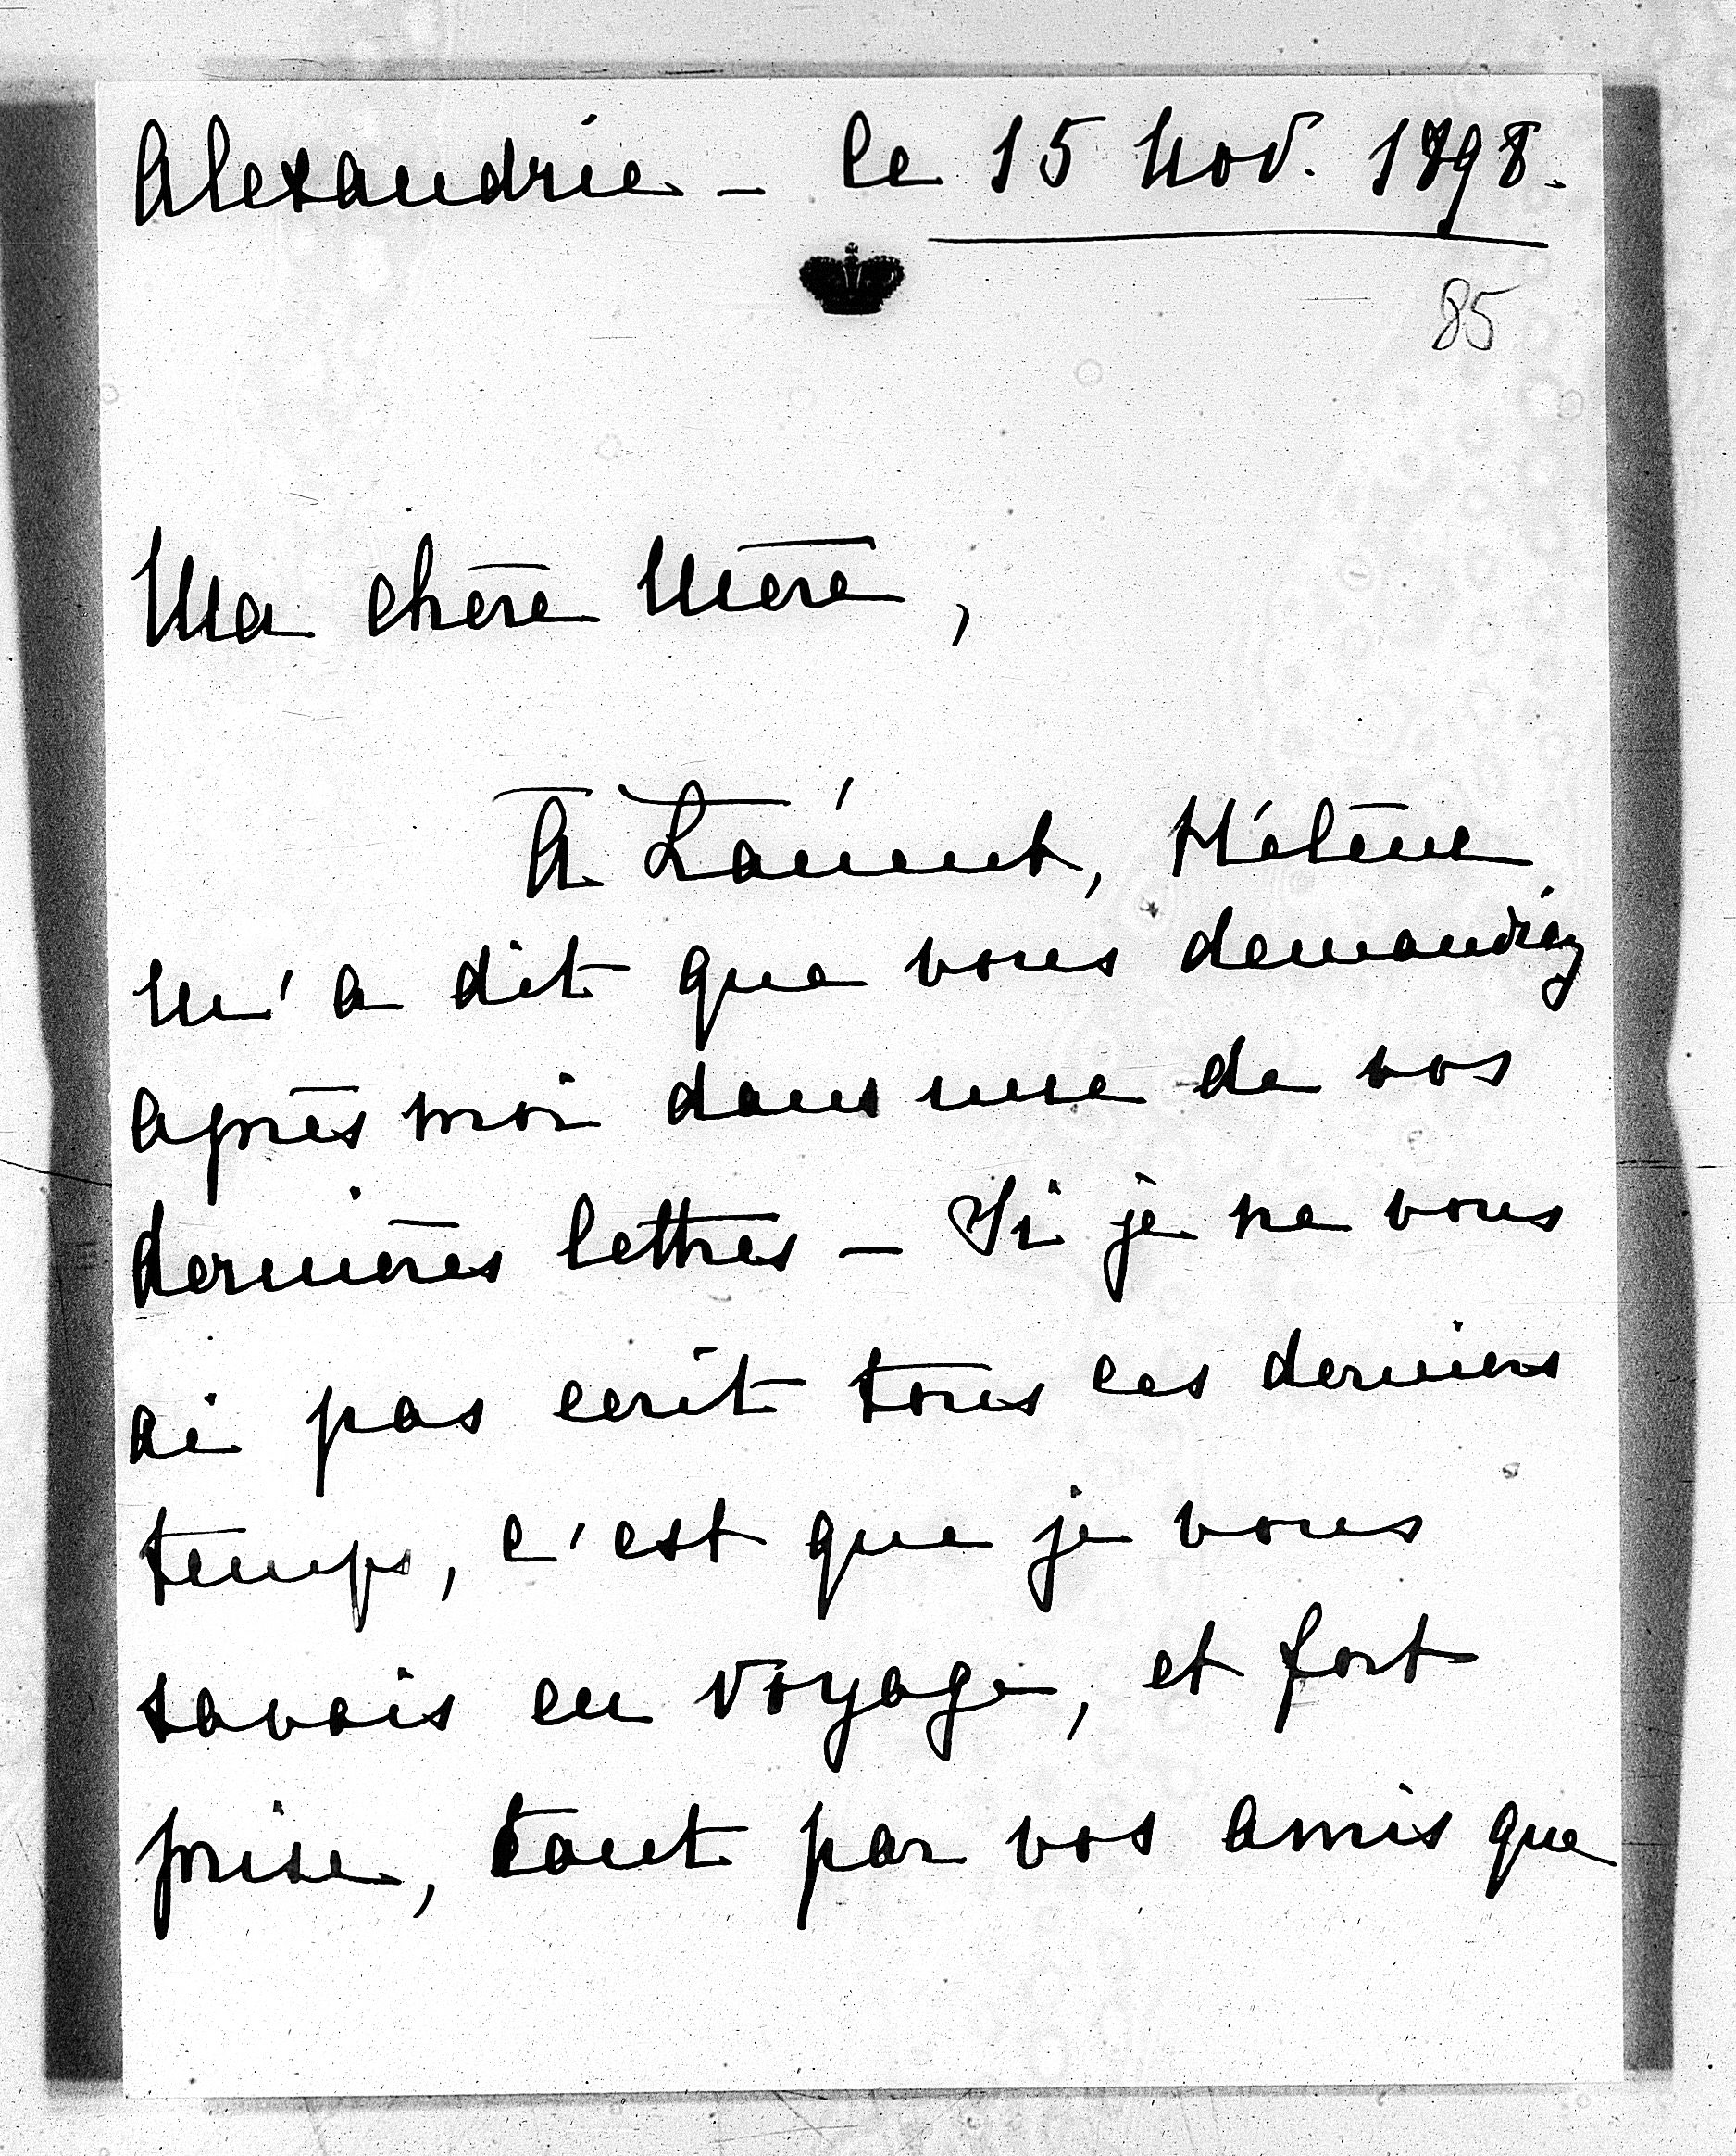 Alexandrie - le 15 Nov. 1898.
85
Ma chère Mère,
À Hélène
m'a dit que vous demandiez
après moi dans une de vos
dernières lettres - Si je ne vous
ai pas ecrit tous ces derniers
temps, c'est que je vous
savais en voyage, et fort
prise, tant par vos amis que